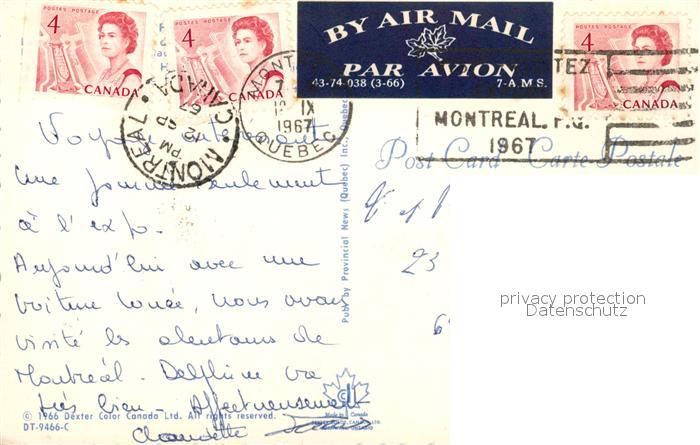 POSTES POSTAGE
4
CANADA
POSTES POSTAGE
4
CANADA
BY AIR MAIL
PAR AVION
43-74-038 (3-66) 7-A.M.S.
POSTES POSTAGE
4
CANADA
MONTREAL
CANADA
PM
12 SP
XI
1967
QUEBEC
MONTREAL. P.Q.
1967
Post Card Carte Postale
une journée seulement
à l'expo.
Aujourd'hui avec une
voiture louée, nous avons
visité les alentours de
Montréal. Delphine va
très bien. Affectueusement
Claudette
23
Publ. by Provincial News (Quebec) Inc., Quebec
privacy protection
Datenschutz
© 1966 Dexter Color Canada Ltd. All rights reserved.
DT-9466-C